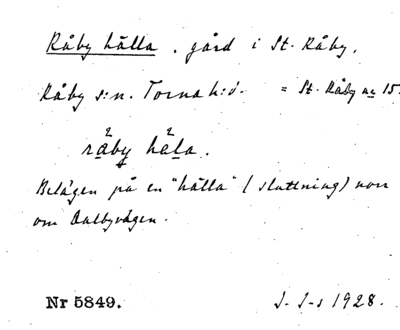 Råby hälla, gård i St. Råby,
Råby s:n. Torna h:d. = St. Råby nr 15.
råby häla.
Belägen på en "hälla" (sluttning) norr
om Dalbyvägen.
Nr 5849. J. I-s 1928.